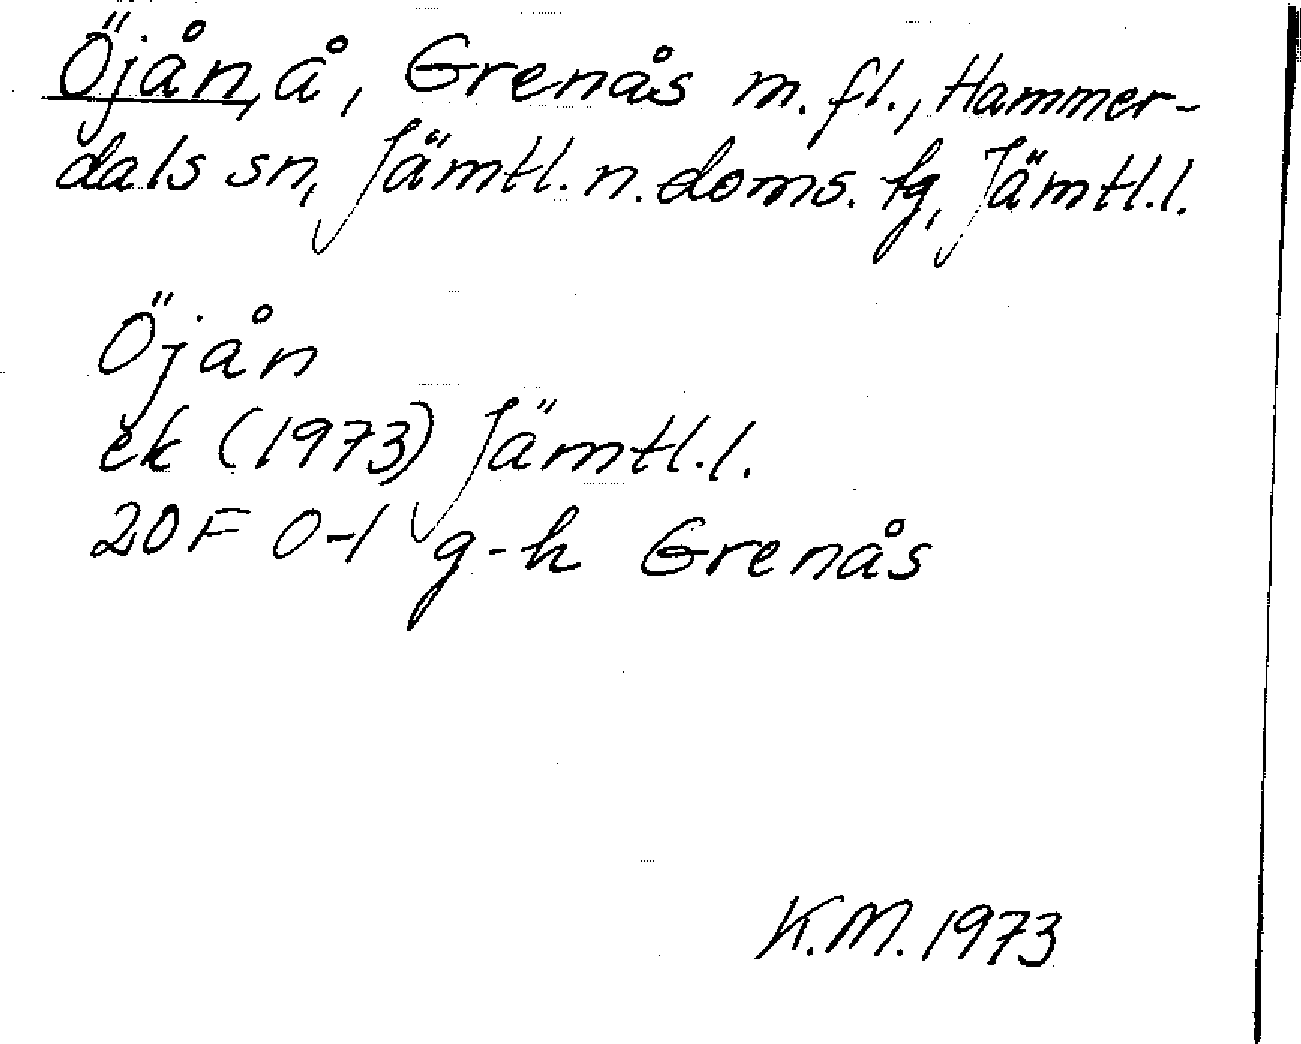 Öjån, å, Grenås m.fl., Hammer-
dals sn, Jämtl. n. doms. tg, Jämtl.l.
Öjån
ek (1973) Jämtl.l.
20F 0-1 g-h Grenås
K.M. 1973